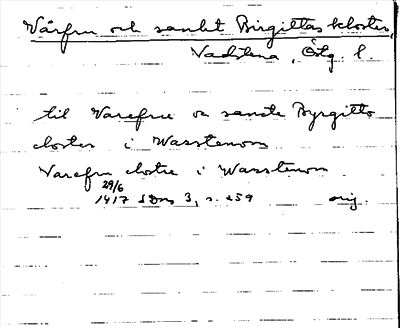 Vårfru och sankt Birgittas kloster,
Vadstena, Ög. l.
til Varefrue oc sancte Byrgitto
closter i Wasstenom
Varefru clostre i Wasstenom
29/6
1417 SDns 3, s. 259 orig.